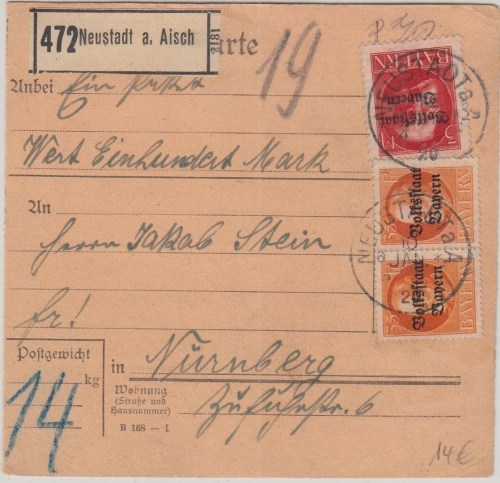 472 Neustadt a. Aisch
2181
arte
19
Anbei Ein Paket
BAYERN
Volksstaat
Bayern
NEUSTADT a. A
20
Wert Einhundert Mark
An
Herrn Jakob Stein
BAYERN
Volksstaat
Bayern
JA
BAYERN
Volksstaat
Bayern
fr!
Postgewicht
14 kg
in Nürnberg
Wohnung
(Straße und
Hausnummer)
Zufuhrstr. 6
B 168 — I
14 €